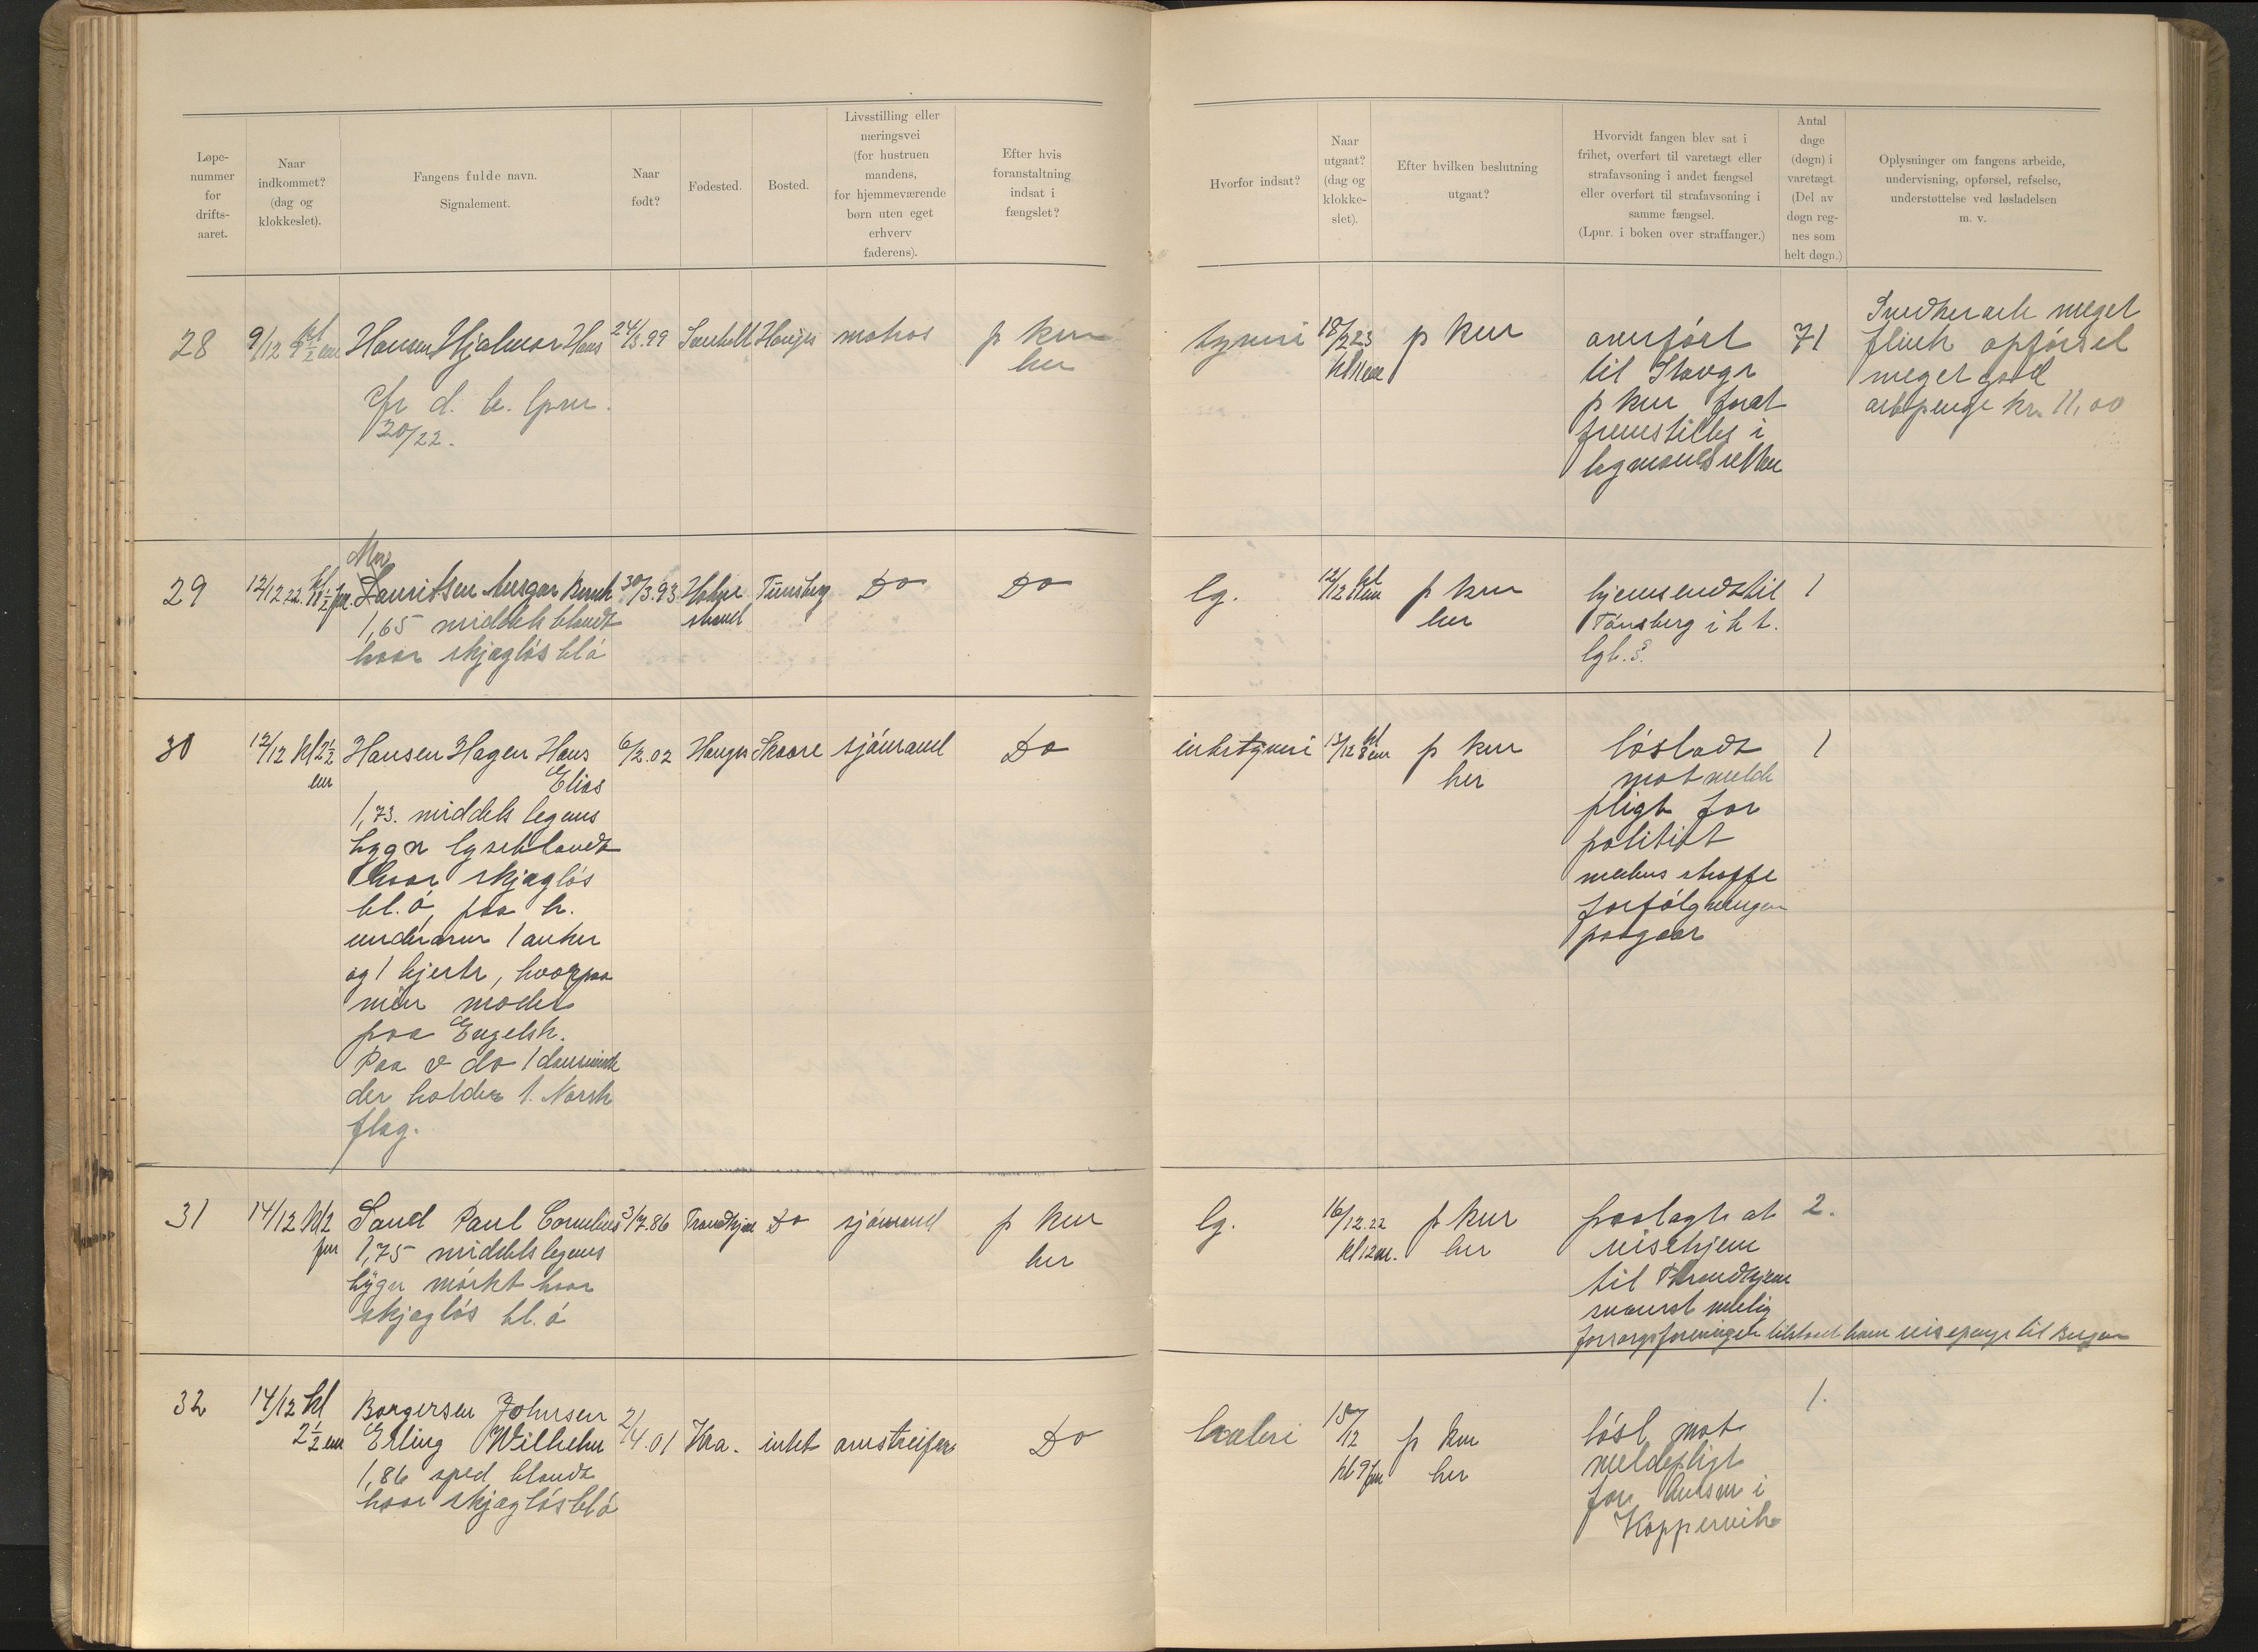 Løpe-
nummer
for
drifts-
aaret.
Naar
indkommet?
(dag og
klokkeslet).
Fangens fulde navn.
Signalement.
Naar
født?
Fødested.
Bosted.
Livsstilling eller
næringsvei
(for hustruen
mandens,
for hjemmeværende
børn uten eget
erhverv
faderens).
Efter hvis
foranstaltning
indsat i
fængslet?
Hvorfor indsat?
Naar
utgaat?
(dag og
klokke-
slet).
Efter hvilken beslutning
utgaat?
Hvorvidt fangen blev sat i
frihet, overført til varetægt eller
strafavsoning i andet fængsel
eller overført til strafavsoning i
samme fængsel.
(Lpnr. i boken over straffanger.)
Antal
dage
(døgn) i
varetægt
(Del av
døgn reg-
nes som
helt døgn.)
Oplysninger om fangens arbeide,
undervisning, opførsel, refselse,
understøttelse ved løsladelsen
m. v.
28
9/12 kl 9½ em
Hansen Hjalmar Hans
cfr d. b. lpnr.
20/22.
24/3.99
Hauges
matros
p kmr
her
tyveri
18/2 23
kl 11 em
p kmr
overført
til Stavgr
p kmr forat
fremstilles i
lagmandsretten
71
Snedkerarb meget
flink opførsel
meget god
arbpenge kr. 11,00
29
12/12 22. kl 11½ fm
Lauritsen Ansgar Bernh
1,65 middels blondt
haar skjægløs bl ø
30/3.93
Holme
strand
Tünsberg
Do
Do
lg.
12/12 kl 8 em
p kmr
her
hjemsendt til
Tønsberg i h t.
lgl. §.
1
30
12/12 kl 2½
em
Hansen Hagen Hans
Elias
1,73. middels legems
bygn lyseblondt
haar skjægløs
bl. ø, paa h.
underarm 1 anker
og 1 hjerte, hvorpaa
min moder
paa Engelsk.
Paa v do 1 danserinde
der holder 1. Norsk
flag.
6/2.02
Hauges
Skaare
sjømand
Do
innbr.tyveri
12/12 kl 8 em
p kmr
her
løsladt
mot melde
pligt for
politiet
mens straffe
forfølgningen
paagaar
1
31
14/12 kl 2
fm
Sand Paul Cornelius
1,75 middels legems
bygn mørkt haar
skjægløs bl. ø
3/7.86
Trondhjem
Do
sjømand
p kmr
her
lg.
16/12.22
kl 12 m.
p kmr
her
paalagt at
reise hjem
til Throndhjem
snarest mulig
forsorgsforeningen tilstod ham reisepenge til Bergen
2.
32
14/12 kl
2½ em
Borgersen Johnsen
Erling Wilhelm
1,86 sped blondt
haar skjægløs bl ø
2/4.01
Kra.
intet
omstreifer
Do
hæleri
15/12
kl 9 fm
p kmr
her
løsl mot
meldepligt
for lensm i
Koppervik
1.